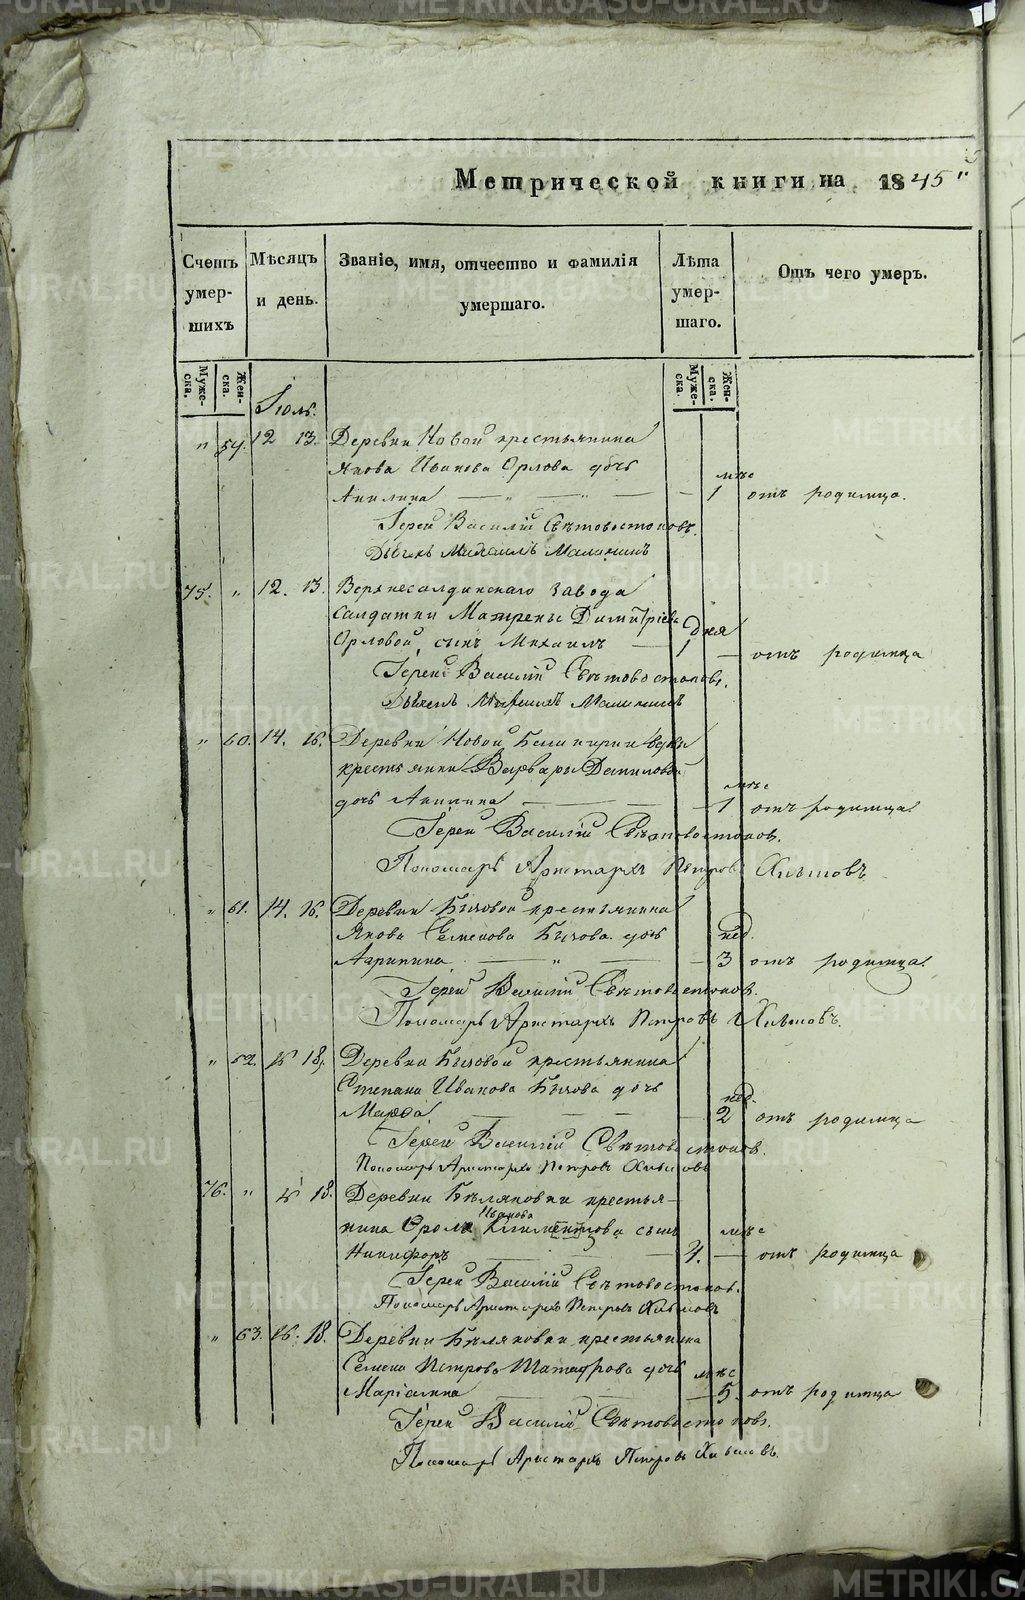 Метрической книги на 1845
Счетъ умершихъ
Мѣсяцъ и день.
Званіе, имя, отчество и фамилія умершаго.
Лѣта умершаго.
Отъ чего умеръ.
Мужеска. Женска. Мужеска. Женска.
Іюль.
" 59. 12 13. Деревни Новой крестьянина
Якова Иванова Орлова дочь мѣс
Акилина — " — " — 1 отъ родимца.
Іерей Василій Свѣтовостоковъ.
Дьяконъ Михаилъ Малининъ
75. " 12. 13. Верхнесалдинскаго завода
солдатки Матрены Димитріевой дня
Орловой, сынъ Михаилъ — 1 — отъ родимца
Іерей Василій Свѣтовостоковъ.
Дьяконъ Михаилъ Малининъ
" 60. 14. 16. Деревни Новой
крестьянки Варвары Даниловой мѣс
дочь Акилина — 1 отъ родимца
Іерей Василій Свѣтовостоковъ.
Пономарь Аристархъ Петровъ Хлыновъ
" 61. 14. 16. Деревни Бызовой крестьянина
Якова Семенова Бызова дочь нед.
Агрипина — " — 3 отъ родимца.
Іерей Василій Свѣтовостоковъ.
Пономарь Аристархъ Петровъ Хлыновъ.
" 62. 16 18. Деревни Бызовой крестьянина
Степана Иванова Бызова дочь нед.
Марфа — 2 отъ родимца
Іерей Василій Свѣтовостоковъ.
Пономарь Аристархъ Петровъ Хлыновъ
76. " 18. Деревни Бѣляковки крестья-
Иванова
нина Фрола Климентова сынъ мѣс
Никифоръ — 4. — отъ родимца
Іерей Василій Свѣтовостоковъ.
Пономарь Аристархъ Петровъ Хлыновъ
" 63. 16. 18. Деревни Бѣляковки крестьянина
Семена Петрова дочь мѣс
Маріамна — 5. отъ родимца
Іерей Василій Свѣтовостоковъ.
Пономарь Аристархъ Петровъ Хлыновъ.
METRIKI.GASO-URAL.RU